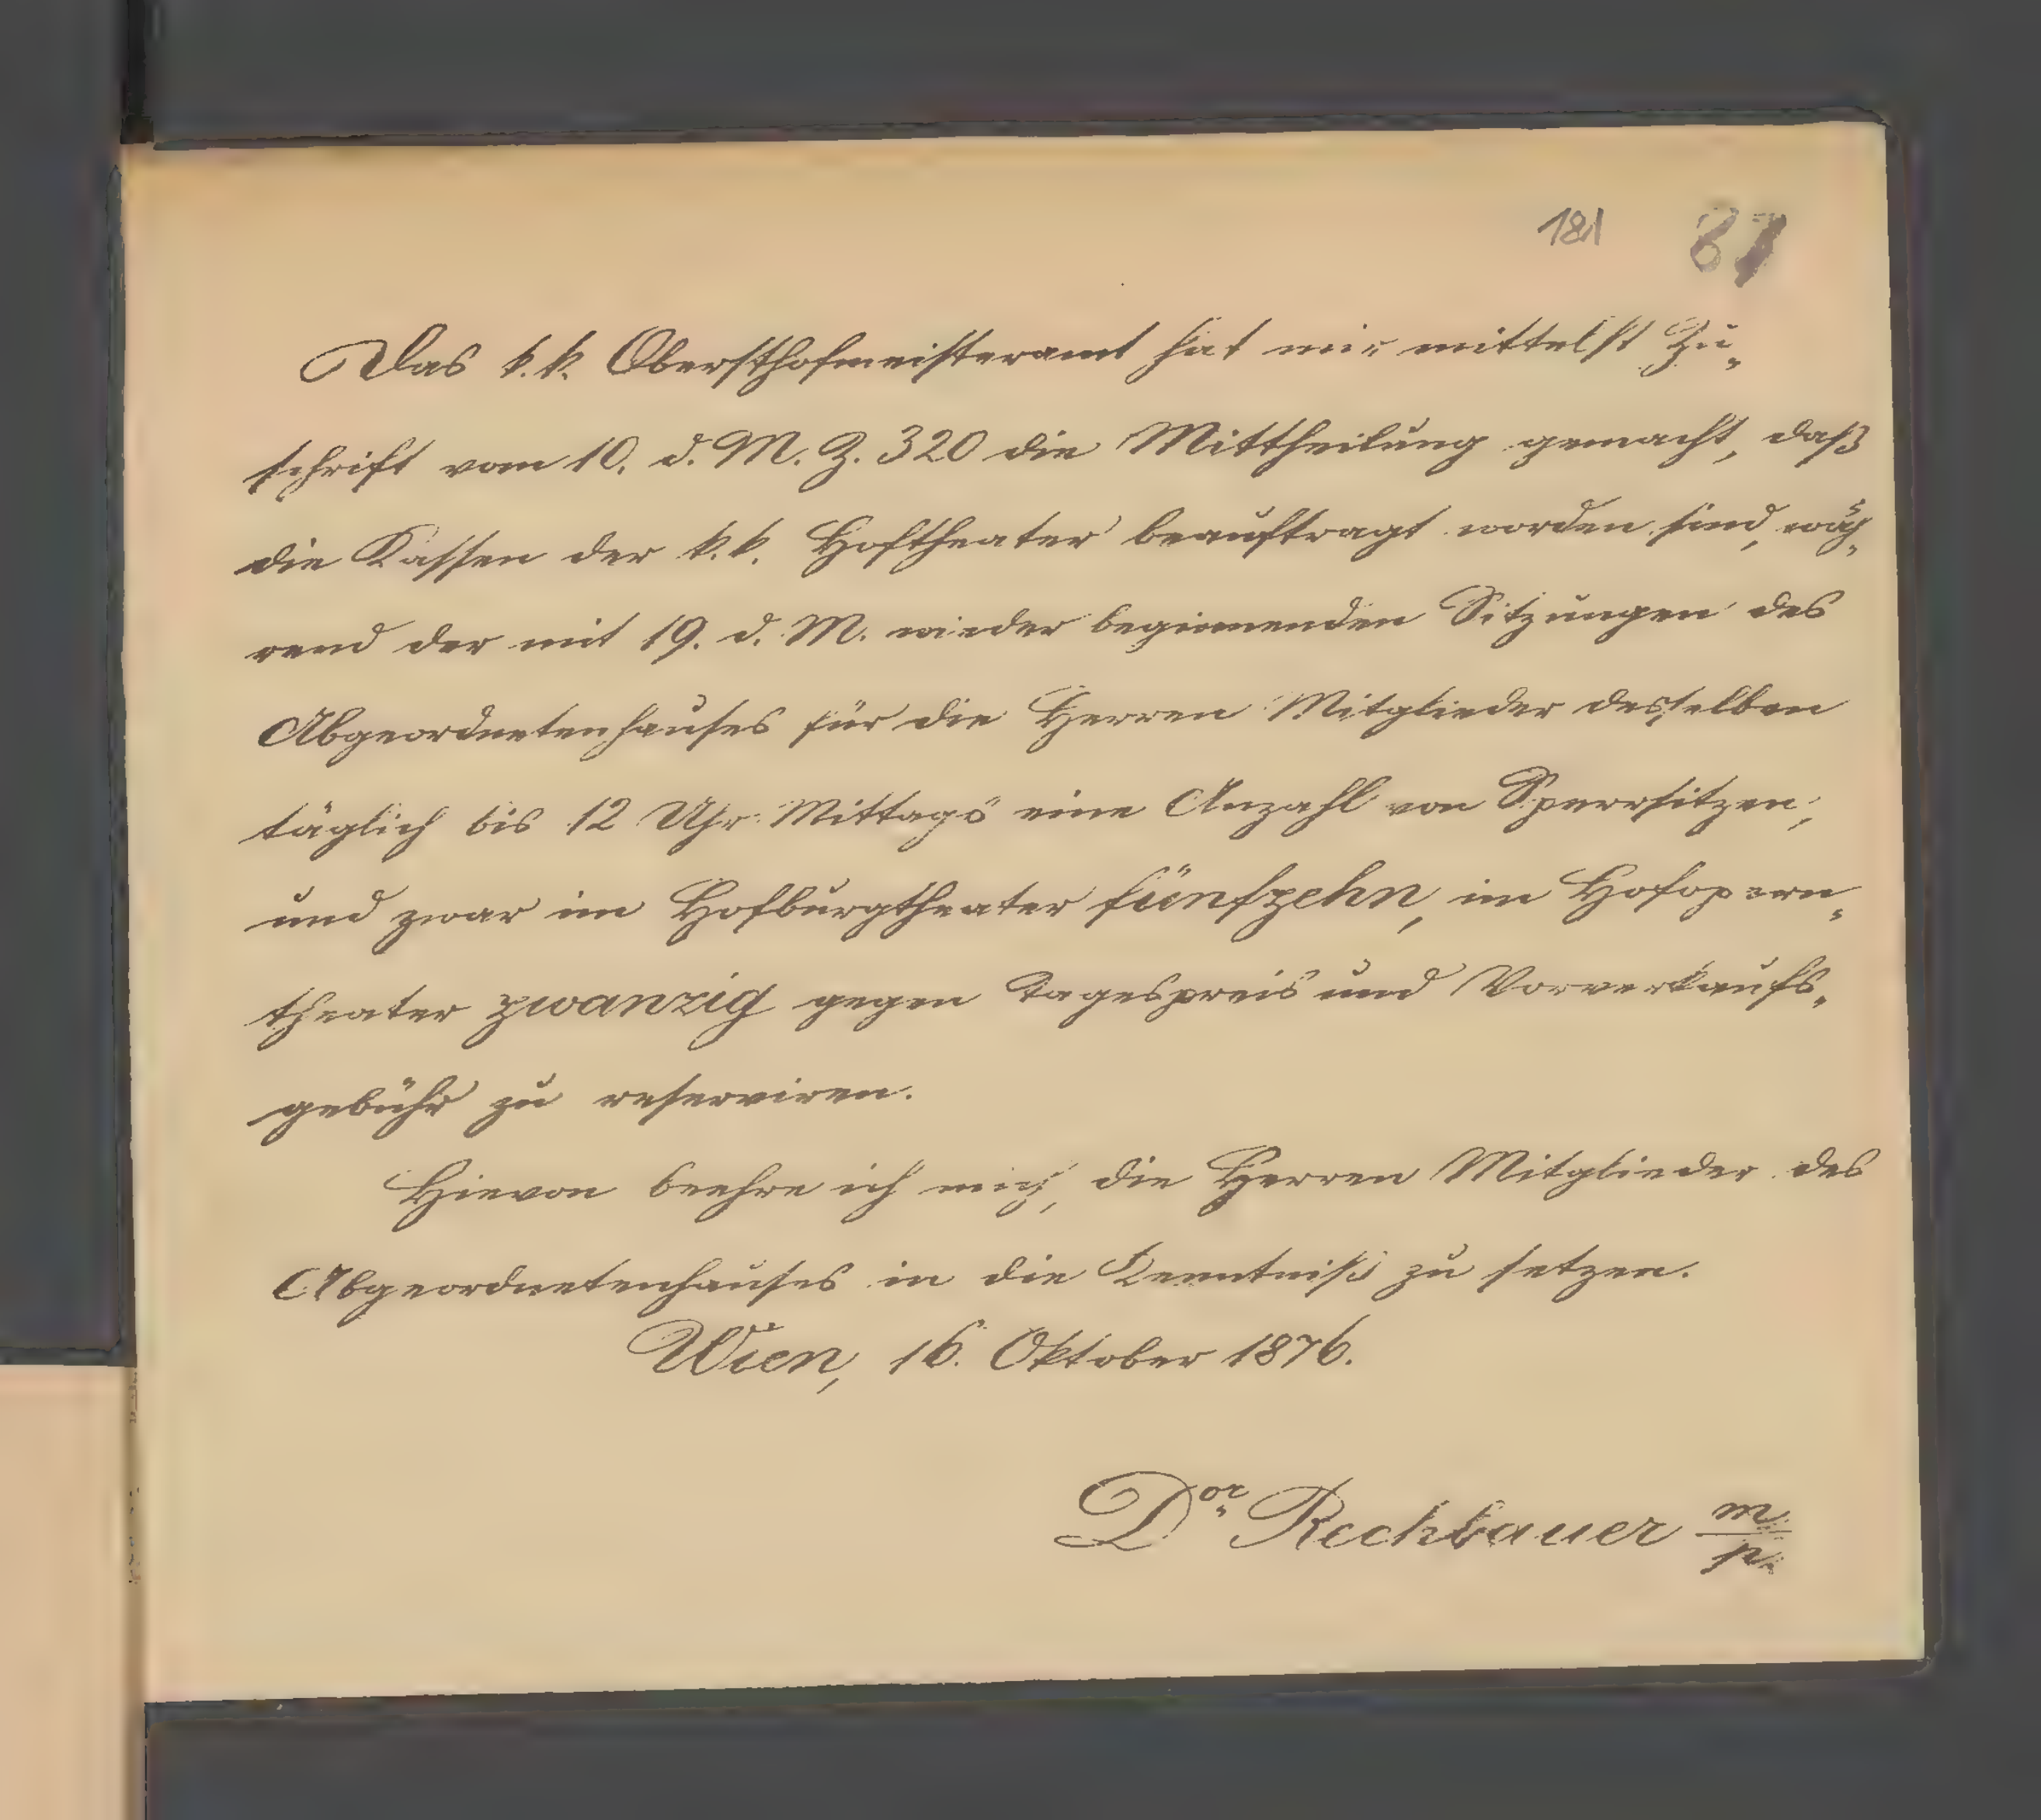 181 87
Das k.k. Obersthofmeisteramt hat mir mittelst Zu„
schrift vom 10. d. M. Z. 320 die Mittheilung gemacht, daß
die Kassen der k.k. Hoftheater beauftragt worden sind, wäh„
rend der mit 19. d. M. wieder beginnenden Sitzungen des
Abgeordnetenhauses für die Herren Mitglieder desselben
täglich bis 12 Uhr Mittags eine Anzahl von Sperrsitzen,
und zwar im Hofburgtheater fünfzehn, im Hofopern„
theater zwanzig gegen Tagespreis und Vorverkaufs„
gebühr zu reserviren.
Hievon beehre ich mich, die Herren Mitglieder des
Abgeordnetenhauses in die Kenntniß zu setzen.
Wien, 16. Oktober 1876.
Dor Rechbauer m/p.